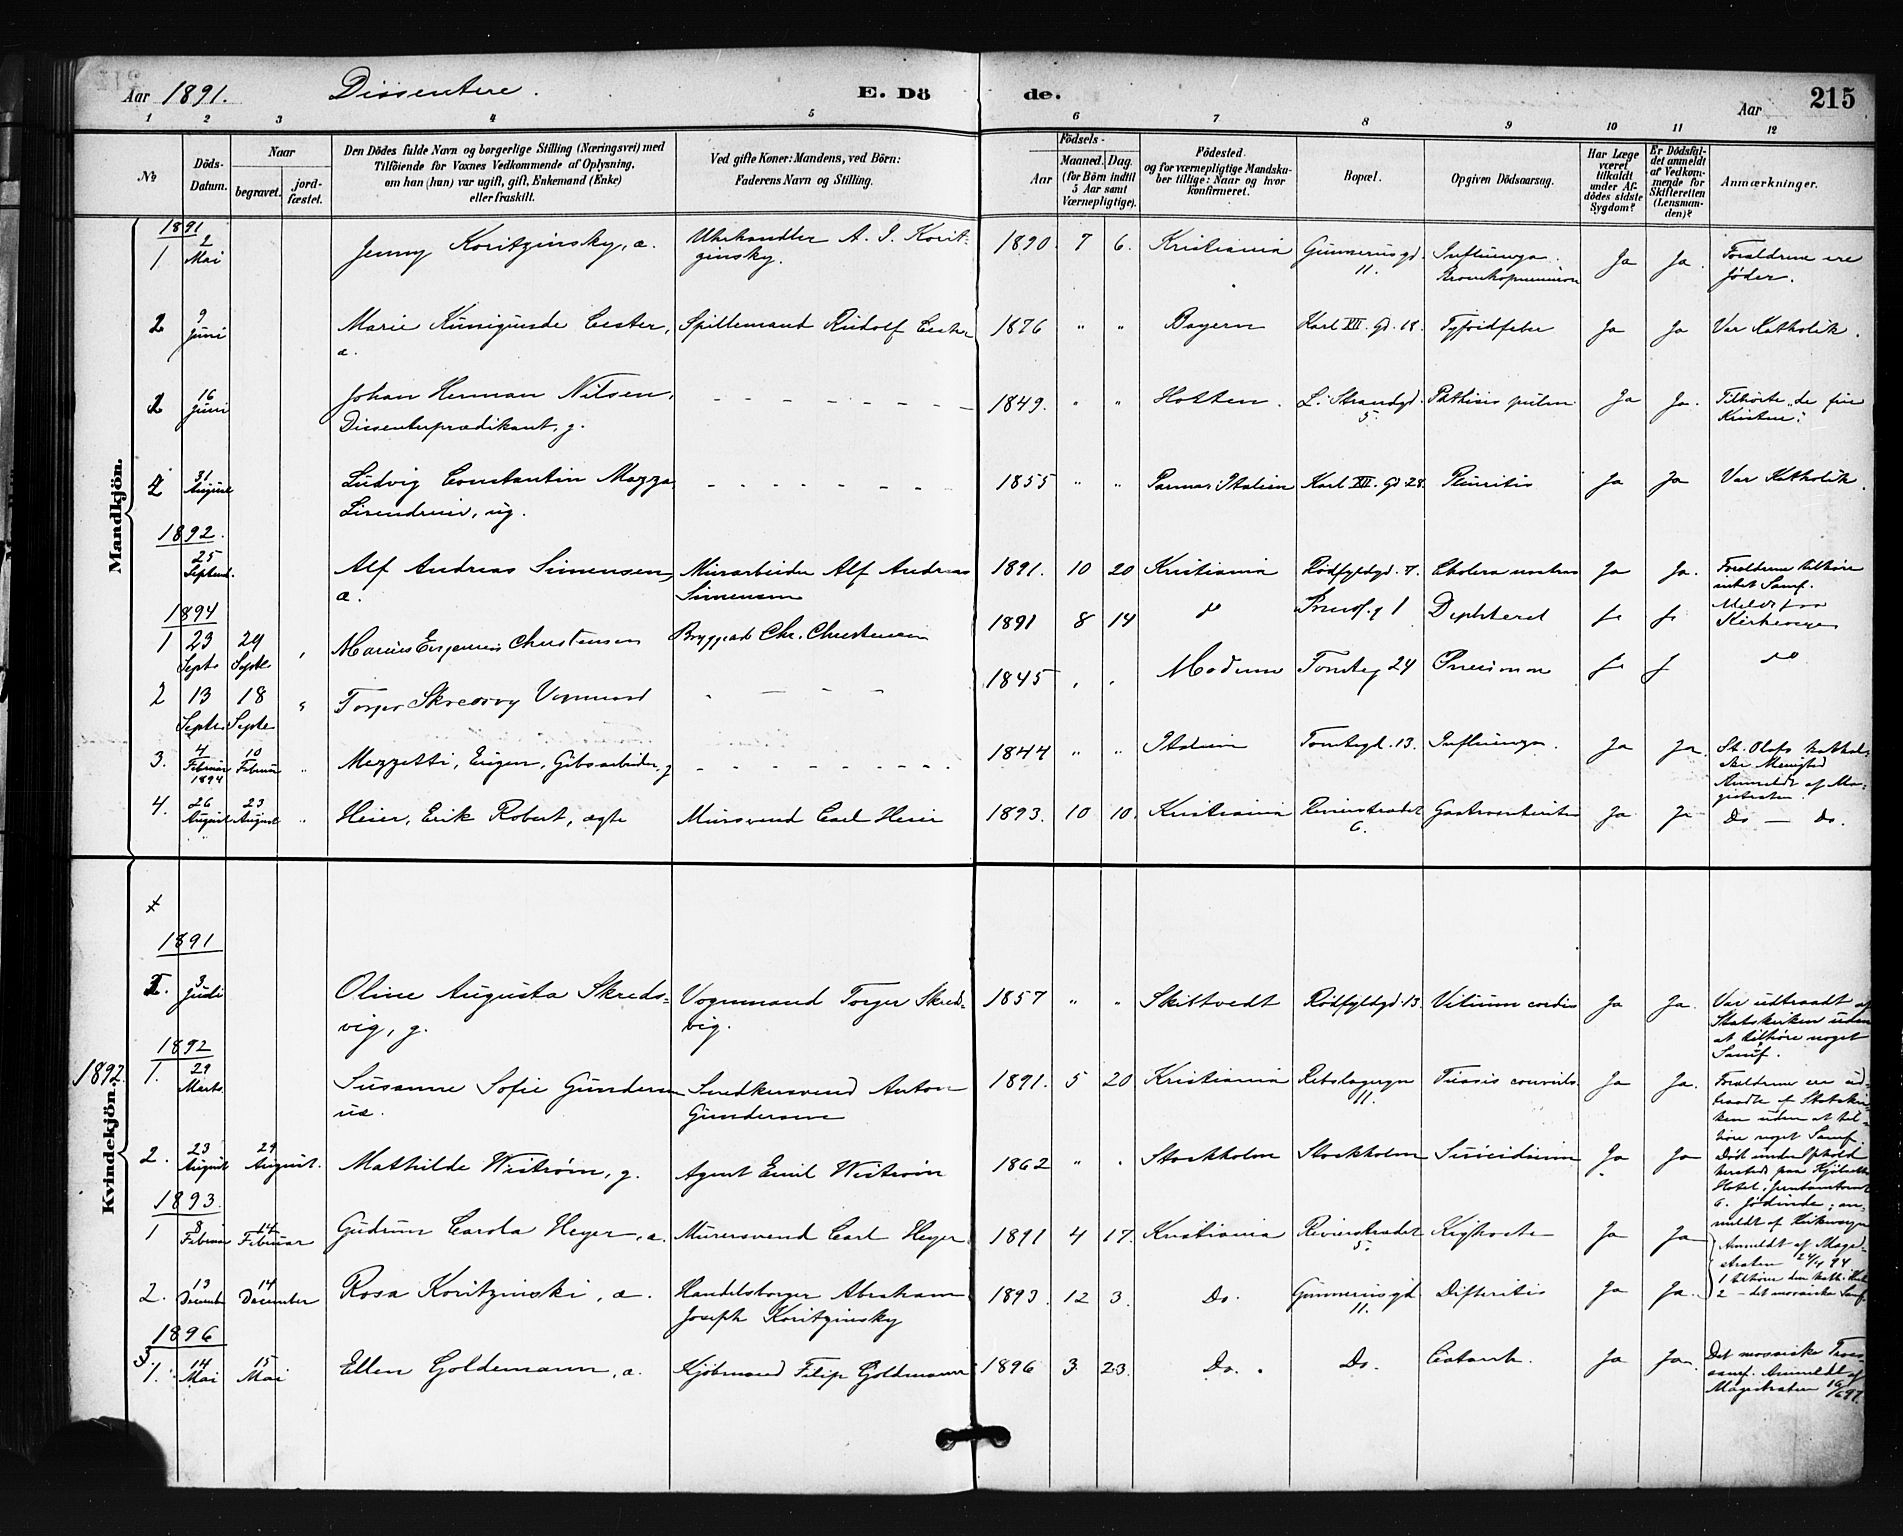 Aar 1891. Dissentere. E. Döde. Aar 215
1 2 3 4 5 6 7 8 9 10 11 12
No
Döds-Datum.
Naar
begravet. jordfæstet.
Den Dödes fulde Navn og borgerlige Stilling (Næringsvei) med
Tilföiende for Voxnes Vedkommende af Oplysning,
om han (hun) var ugift, gift, Enkemand (Enke)
eller fraskilt.
Ved gifte Koner: Mandens, ved Börn:
Faderens Navn og Stilling.
Födsels-
Aar
Maaned. Dag.
(for Börn indtil
5 Aar samt
Værnepligtige).
Födested
og for værnepligtige Mandskaber tillige: Naar og hvor
konfirmeret.
Bopæl.
Opgiven Dödsaarsag.
Har Læge
været
tilkaldt
under Afdödes sidste
Sygdom?
Er Dödsfaldet anmeldt
af Vedkommende for
Skifteretten
(Lensmanden)?
Anmærkninger.
Mandkjön.
1891
1 2 Mai Jenny Koritzinsky, æ. Uhrhandler A. J. Koritzinsky. 1890. 7 6. Kristiania Gunnerusgd. 11. Influenza. Bronkopneumon Ja Ja. Foraldrene ere Jøder.
2 9 Juni Marie Kunigunde Cester, æ. Spillemand Rudolf 1876 " " Bayern Karl XII. gd. 18. Tyfoidfeber Ja Ja Var Katholik.
2 16 Juni Johan Herman Nilsen, Dissenterprædikant, g. - - - - 1849. " " Holten. L. Strandgd. 5. Phthisis pulm. Ja Ja. Tilhørte "de frie Kristne".
2 31 August Ludvig Constantin Mazza ug. - - - - 1855 " " Parma, Italien Karl XII. gd 28. Pleuritis Ja Ja Var Katholik.
1892.
25 Septemb. Alf Andreas Simensen, æ. Murarbeider Alf Andreas Simensen 1891. 10 20 Kristiania Rødfyldgd. 7. Cholera nostras Ja Ja. Foraldrene tilhøre intet Samf.
1894
1 23 Septe 29 Septe Marius Eugenius Christensen Chr. Christensen 1891 8 14 do 1 Diphterit Ja Ja Meldt fra Kirkeverge
2 13 Septe 18 Septe Torger Skredsvig Vognmand - - - - 1845 " " Modum Tomteg 24 Pneumon Ja Ja do
3. 4 Februar 1894 10 Februar " Mezzetti, Eugen, Gibsarbeider, g - - - - 1844 " " Italien Tomtegd. 13. Influenza. Ja Ja. St. Olafs katholske Menighed Anmeldt af Magistraten.
4. 26 August 23 August " Heier, Erik Robert, ægte Mursvend Carl Heier 1893. 10 10. Kristiania Revierstrædet 6. Gastroenteritis Ja Ja Do — do.
Kvindekjön.
1891
1. 3 Juli Oline Augusta Skredsvig, g. Vognmand Torger Skredsvig. 1857 " " Skiftvedt Rødfyldgd. 13. Vitium cordis Ja Ja. Var udtraadt af Statskirken uden at tilhøre noget Samf.
1892
1892. 1. 29 Marts Susanne Sofie Gundersen Snedkersvend Anton Gundersen 1891. 5 20 Kristiania Rebslagergn 11. Tussis convuls. Ja Ja. Foraldrene ere udtraadte af Statskirken uden at tilhøre noget Samf.
2. 23 August 29 August. Mathilde Wiström, g. Agent Emil Wiström 1862 " " Stockholm Stockholm Suicidium Ja Ja Død under Ophold
Hotel, Jødinde; anmeldt af Kirkevergen
1893.
1 8 Februar 14 Februar Gudrun Carola Heyer, æ. Murersvend Carl Heyer 1891 4 17. Kristiania Revierstrædet 5. Kighoste Ja Ja Anmeldt af Magistraten 24/4 94
2. 13 December 14 December Rosa Koritzinski, æ. Handelsborger Abraham Joseph Koritzinsky 1893. 12 3. Do. Gunnerusgd 11. Difteritis Ja Ja. 1 tilhøre den kath. 2 — det mosaiske Samf.
1896
1. 14 Mai 15 Mai Ellen Goldemann, æ. Kjöbmand Filip Goldmann 1896 3 23. Do. Do. Ja Ja. Det mosaiske Trossamf. Anmeldt af Magistraten